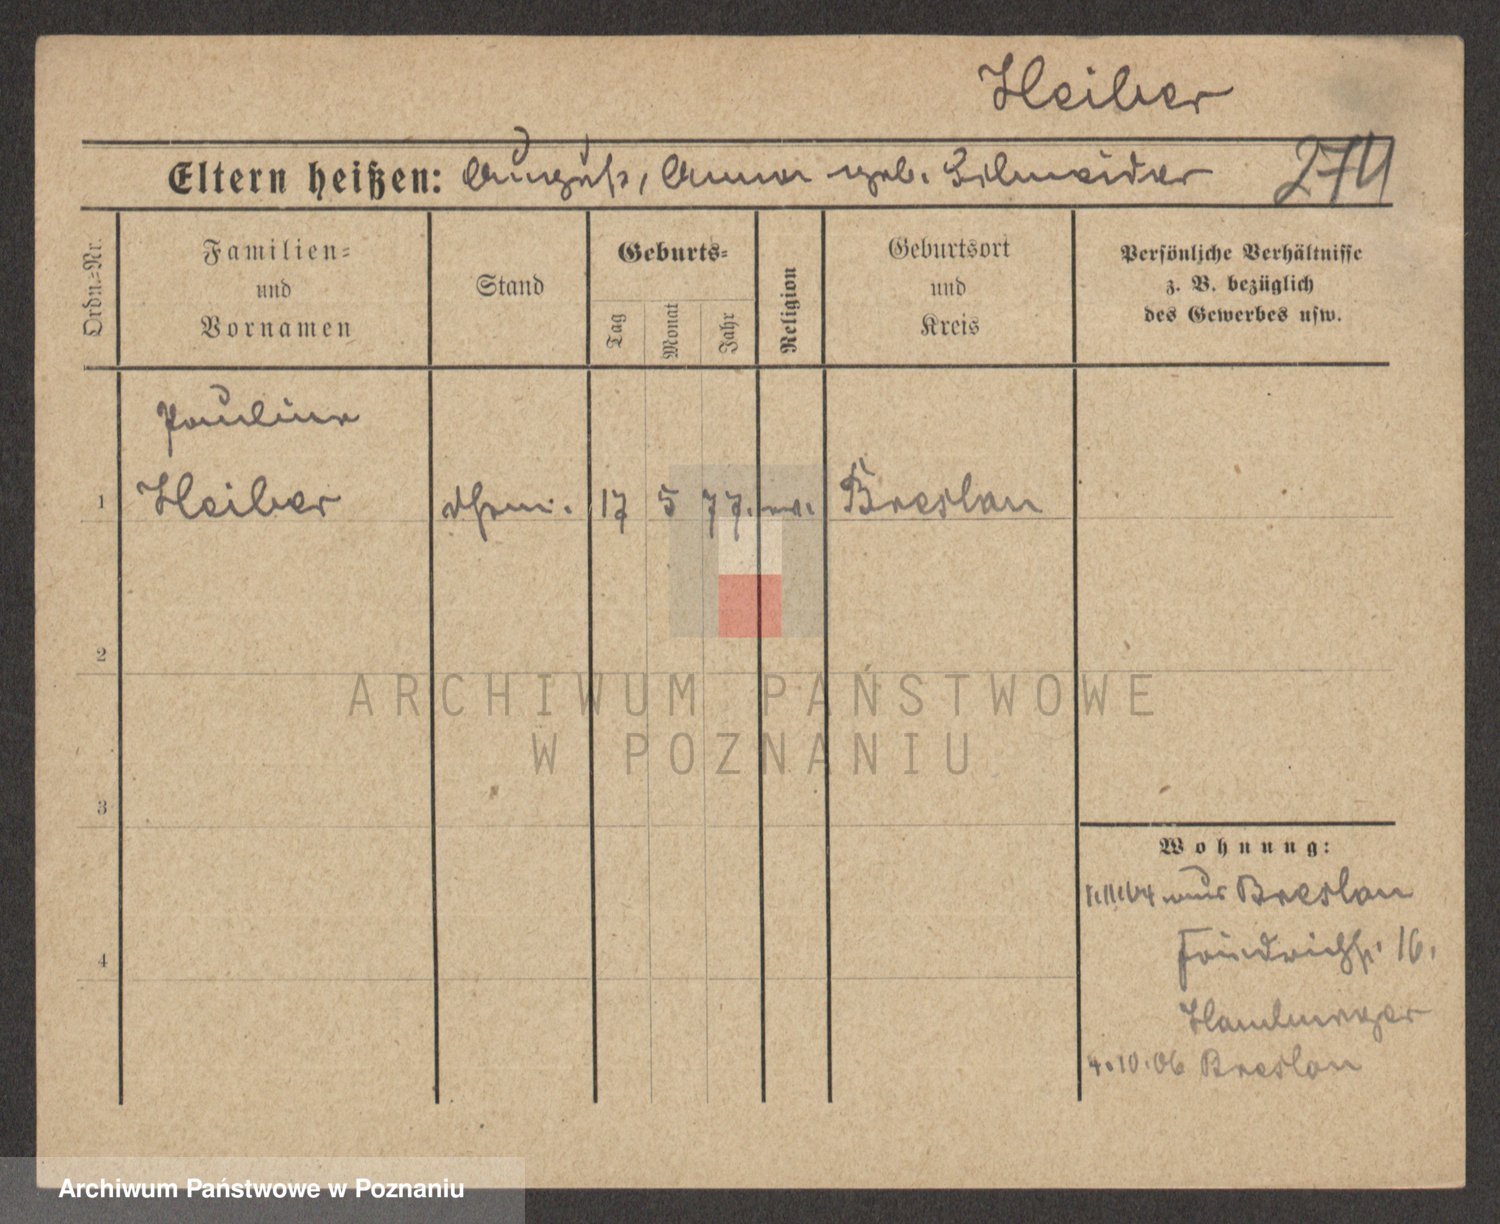 Heiber
Eltern heißen: August, Anna geb. Schneider
274
Ordn.-Nr.
Familien-
und
Vornamen
Stand
Geburts-
Tag
Monat
Jahr
Religion
Geburtsort
und
Kreis
Persönliche Verhältnisse
z. B. bezüglich
des Gewerbes usw.
Pauline
1 Heiber 17 5 77. ev. Breslau
2
3
4
Wohnung:
aus Breslau
Friedrichstr. 16.
Hamburger
4.10.06 Breslau
ARCHIWUM PAŃSTWOWE
W POZNANIU
Archiwum Państwowe w Poznaniu